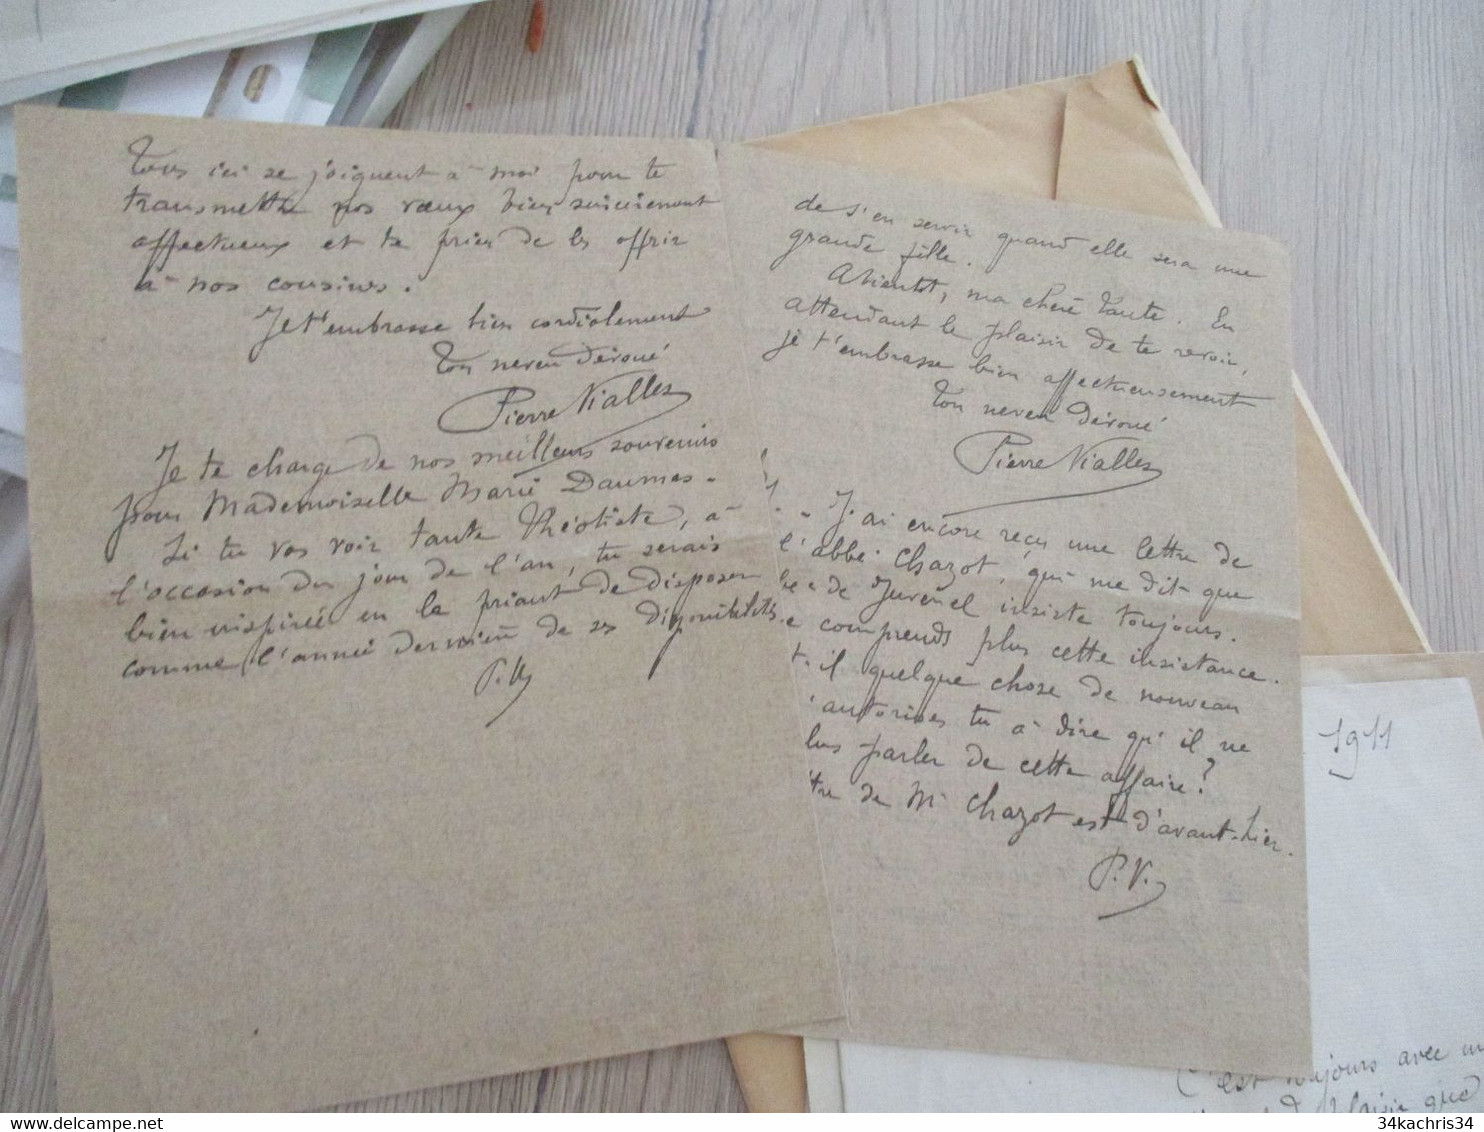 Tous ici se joignent à moi pour te
transmettre nos vœux bien sincèrement
affectueux et te prier de les offrir
à nos cousines.
Je t'embrasse bien cordialement
Ton neveu dévoué
Pierre Vialles
Je te charge de nos meilleurs souvenirs
pour Mademoiselle Marie Daumas.
Si tu vas voir tante Théotiste, à
l'occasion du jour de l'an, tu serais
bien inspirée en la priant de disposer
comme l'année dernière de ses disponibilités.
P. V.
de s'en servir quand elle sera une
grande fille.
A bientôt, ma chère tante. En
attendant le plaisir de te revoir,
je t'embrasse bien affectueusement
Ton neveu dévoué
Pierre Vialles
J'ai encore reçu une lettre de
l'abbé Chazot, qui me dit que
de Juvenel insiste toujours.
e comprends plus cette insistance.
t-il quelque chose de nouveau
'autorises tu à dire qu'il ne
lus parler de cette affaire?
ttre de Mr Chazot est d'avant-hier.
P. V.
1911
C'est toujours avec un
plaisir que
34kachris34
34kachris34